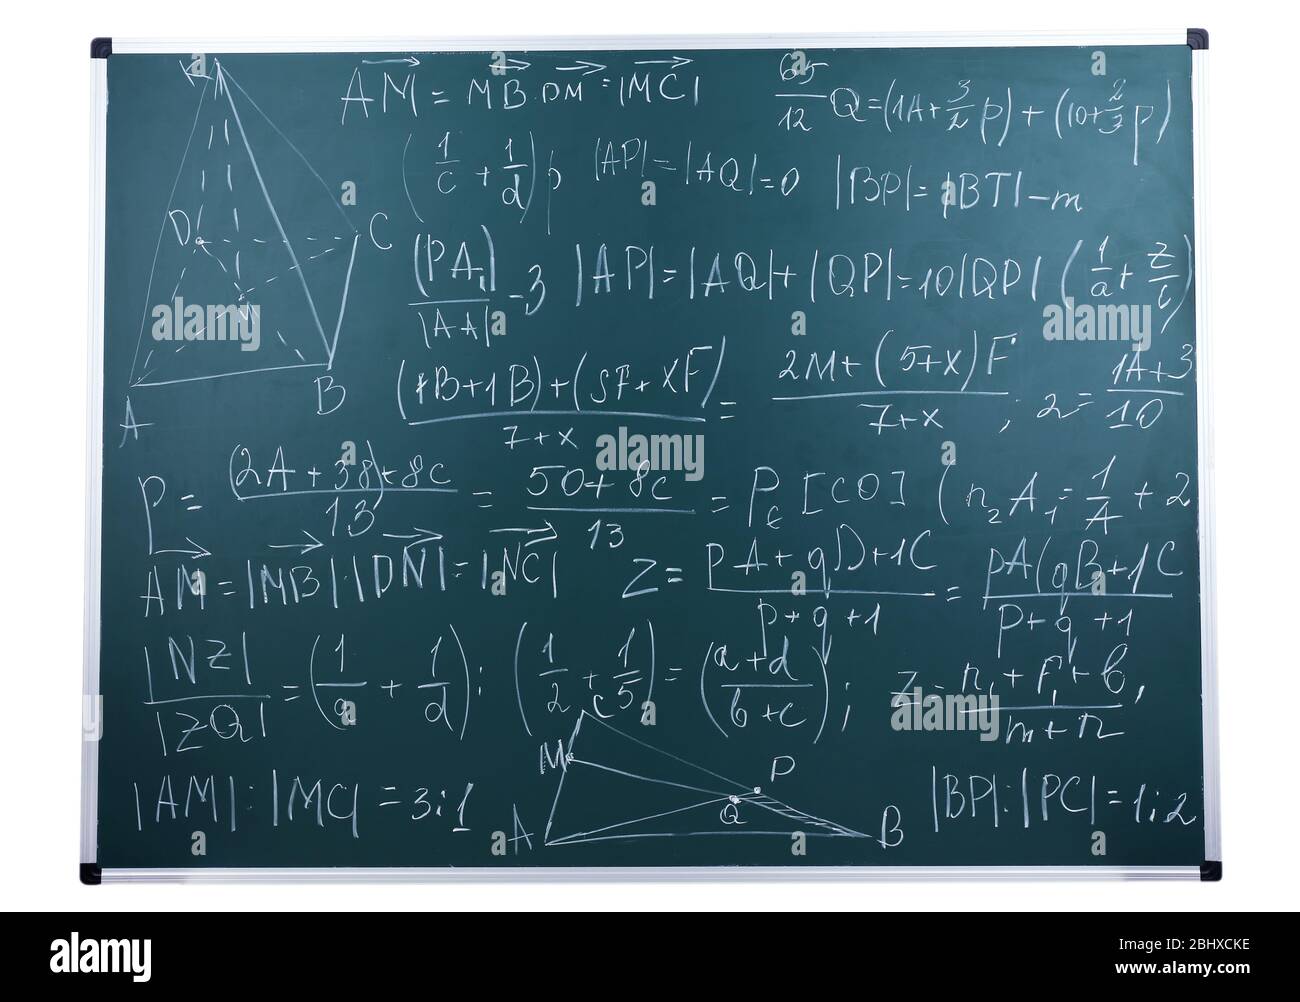 K
AM = MB DM = |MC|
65/12 Q = (1A + 3/2 p) + (10 + 2/3 p)
(1/c + 1/d) |AP| = |AQ| = 0 |BP| = |BT| - m
D C
(PA₁)/|AA| - 3 |AP| = |AQ| + |QP| = 10|QP| (1/a + z/b)
A B
((1B+1B)+(5F+XF))/(7+x) = (2M+(5+x)F)/(7+x) ; 2 = (1A+3)/10
P = ((2A+38)+8c)/13 = (50+8c)/13 = Pc [CO] (n₂A₁ = 1/A + 2
AM = |MB| |DN| = |NC| Z = (pA+qD+1C)/(p+q+1) = (pA(qB+1C)/(p+q+1)
|NZ|/|ZQ| = (1/a + 1/d) ; (1/2 + 1/5) = (a+d)/(b+c) ; Z - (n₁+F₁+b)/(m+n) ,
C
M P
Q
A B
|AM| : |MC| = 3:1 |BP| : |PC| = 1:2
alamy
Image ID: 2BHXCKE
www.alamy.com